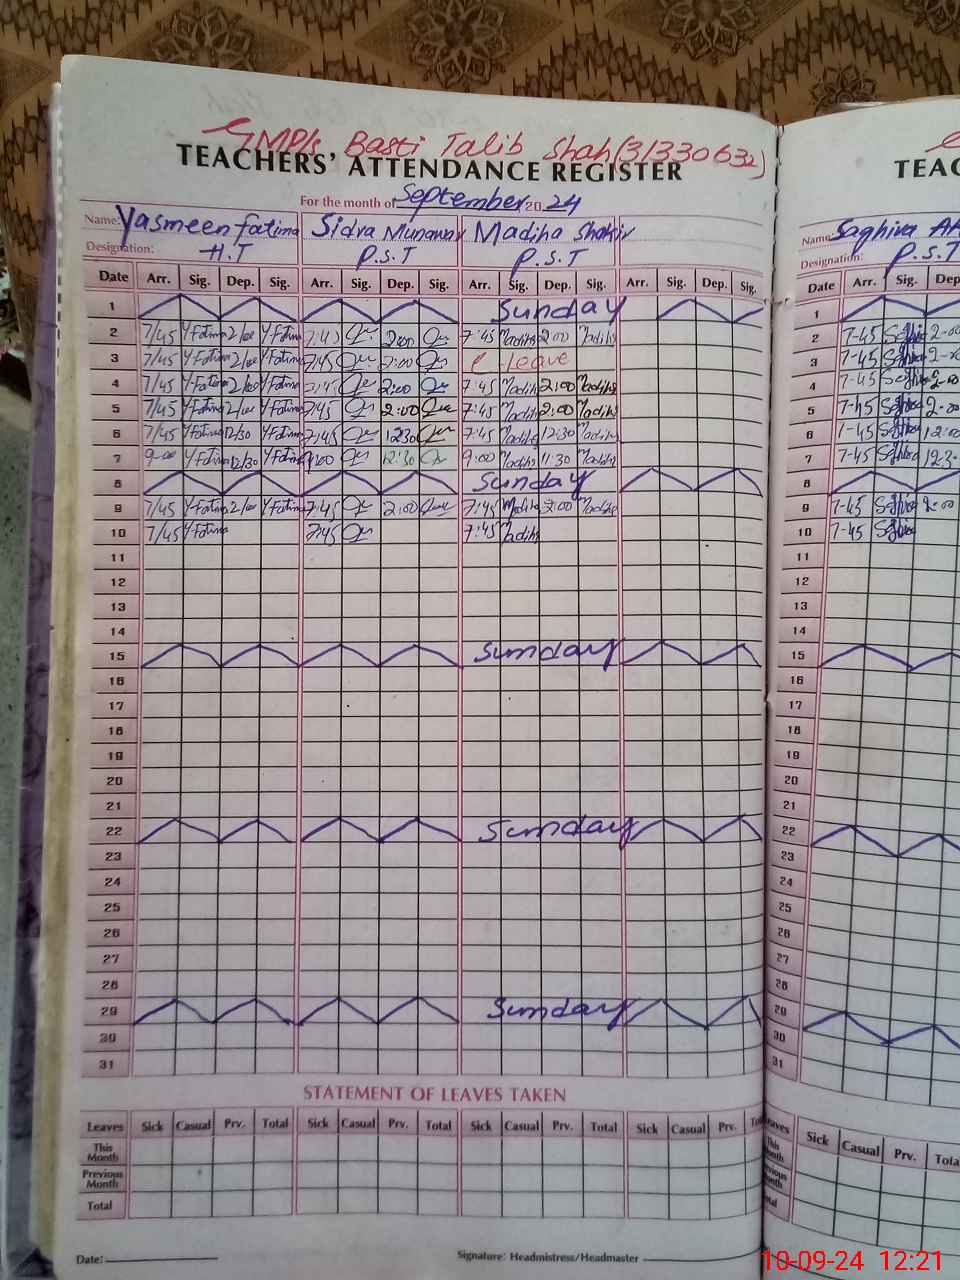 GMP/s Basti Talib Shah (31330632)
TEACHERS' ATTENDANCE REGISTER
For the month of September 20 24
Name: Yasmeen Fatima Sidra Munawar Madiha Shakir
Designation: H.T P.S.T P.S.T
Date Arr. Sig. Dep. Sig. Arr. Sig. Dep. Sig. Arr. Sig. Dep. Sig. Arr. Sig. Dep. Sig.
1 Sunday
2 7/45 YFatima 2/00 YFatima 7:45 2:00 7:45 Madiha 2:00 Madiha
3 7/45 YFatima 2/00 YFatima 7:45 2:00 Leave
4 7/45 YFatima 2/00 YFatima 7:45 2:00 7:45 Madiha 2:00 Madiha
5 7/45 YFatima 2/00 YFatima 7:45 2:00 7:45 Madiha 2:00 Madiha
6 7/45 YFatima 12/30 YFatima 7:45 12:30 7:45 Madiha 12:30 Madiha
7 9-00 YFatima 12/30 YFatima 9:00 12:30 9:00 Madiha 11:30 Madiha
8 Sunday
9 7/45 YFatima 2/00 YFatima 7:45 2:00 7:45 Madiha 2:00 Madiha
10 7/45 YFatima 7:45 7:45 Madiha
11
12
13
14
15 Sunday
16
17
18
19
20
21
22 Sunday
23
24
25
26
27
28
29 Sunday
30
31
STATEMENT OF LEAVES TAKEN
Leaves Sick Casual Prv. Total Sick Casual Prv. Total Sick Casual Prv. Total Sick Casual Prv.
This Month
Previous Month
Total
Date: Signature: Headmistress/Headmaster
TEAC
Name: Saghira
Designation: P.S.T
Date Arr. Sig. Dep
1
2 7-45 2-00
3 7-45
4 7-45 2-00
5 7-45 2-00
6 7-45 12:00
7 7-45 12:3
8
9 7-45 2-00
10 7-45
11
12
13
14
15
16
17
18
19
20
21
22
23
24
25
26
27
28
29
30
31
Sick Casual Prv. Tota
10-09-24 12:21